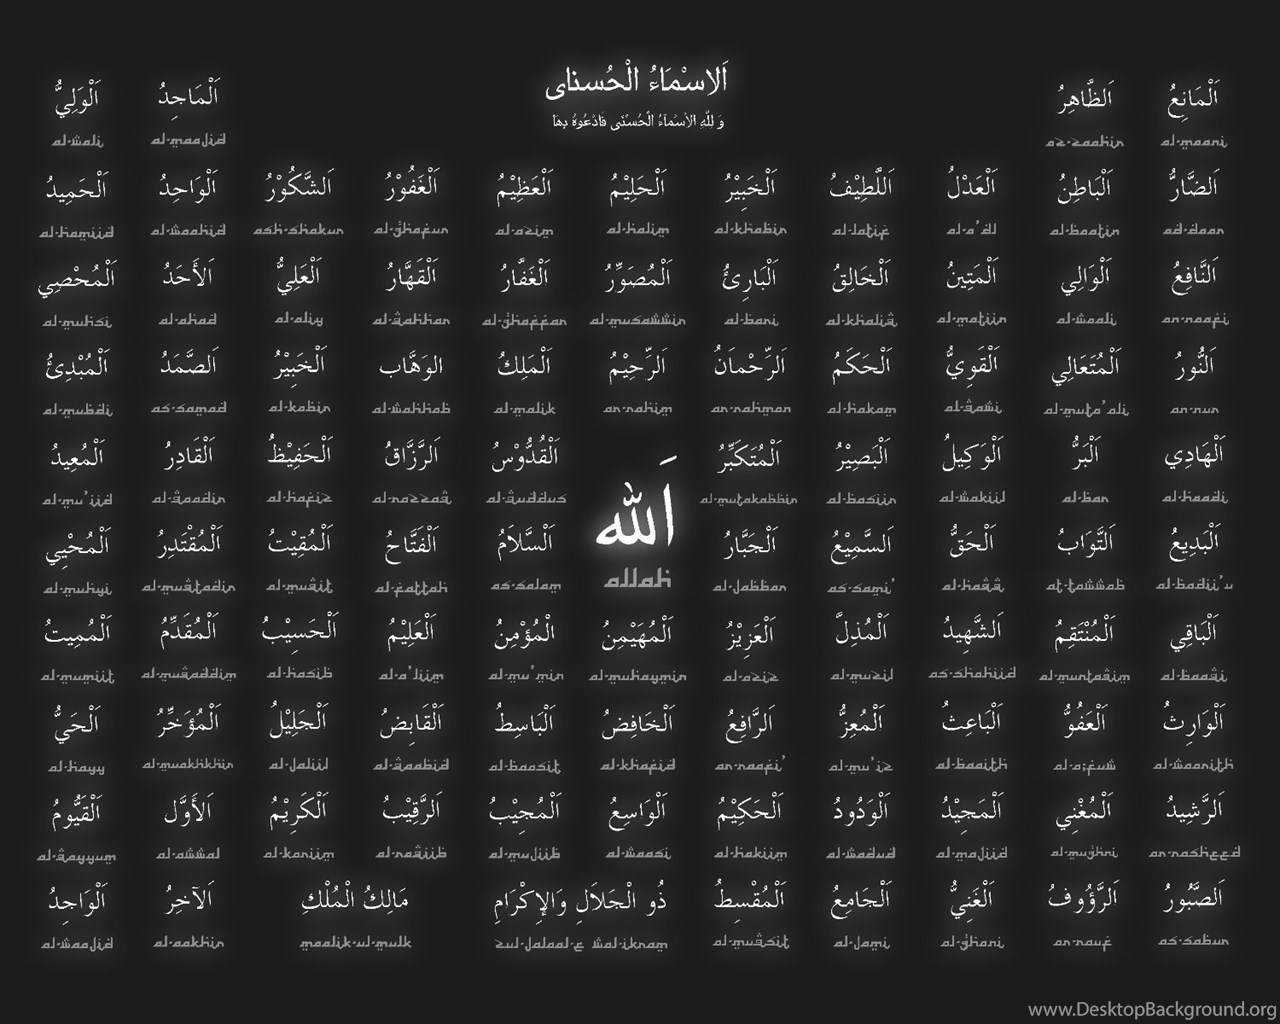 اَلاِسْمَاءُ الْحُسنای
وَ لِلّٰهِ الاَسْمَآءُ الْحُسْنٰی فَادْعُوهُ بِهَا
اَلْمَانِعُ اَلظَّاهِرُ اَلْمَاجِدُ اَلْوَلِيُّ
al-wali al-maajid az-zaahir al-maani
اَلضَّارُّ اَلْبَاطِنُ اَلْعَدْلُ اَللَّطِيْفُ اَلْخَبِيْرُ اَلْحَلِيْمُ اَلْعَظِيْمُ اَلْغَفُوْرُ اَلشَّكُوْرُ اَلْوَاحِدُ اَلْحَمِيدُ
al-hamiid al-waahid ash-shakur al-ghafur al-azim al-halim al-khabir al-latif al-a'dl al-baatin ad-daar
اَلنَّافِعُ اَلْوَالِي اَلْمَتِينُ اَلْخَالِقُ اَلْبَارِئُ اَلْمُصَوِّرُ اَلْغَفَّارُ اَلْقَهَّارُ اَلْعَلِيُّ اَلأَحَدُ اَلْمُحْصِي
al-muhsi al-ahad al-aliy al-qahhar al-ghaffar al-musawwir al-bari al-khaliq al-matiin al-waali an-naafi
اَلنُّورُ اَلْمُتَعَالِي اَلْقَوِيُّ اَلْحَكَمُ اَلرِّحْمَانُ اَلرِّحِيْمُ اَلْمَلِكُ الوَهَّاب اَلْخَبِيْرُ اَلصَّمَدُ اَلْمُبْدِئُ
al-mubdi as-samad al-kabir al-wahhab al-malik ar-rahim ar-rahman al-hakam al-qawi al-muta'ali an-nur
اَلْهَادِي اَلْبَرُّ اَلْوَكِيلُ اَلْبَصِيْرُ اَلْمُتَكَبِّرُ اَلْقُدُّوْسُ اَلرَّزَّاقُ اَلْحَفِيْظُ اَلْقَادِرُ اَلْمُعِيدُ
al-mu'iid al-qaadir al-hafiz al-razzaq al-quddus al-mutakabbir al-basiir al-wakiil al-bar al-haadi
اَلْبَدِيعُ اَلتَّوَابُ اَلْحَقُّ اَلسَّمِيْعُ اَلْجَبَّارُ اَلله اَلسَّلاَمُ اَلْفَتَّاحُ اَلْمُقِيْتُ اَلْمُقْتَدِرُ اَلْمُحْيِي
al-muhyi al-muqtadir al-muqit al-fattah as-salam allah al-jabbar as-sami' al-haqq at-tawwab al-badii'u
اَلْبَاقِي اَلْمُنْتَقِمُ اَلشَّهِيدُ اَلْمُذِلَّ اَلْعَزِيْزُ اَلْمُهَيْمِنُ الْمُؤْمِنُ اَلْعَلِيْمُ اَلْحَسِيْبُ اَلْمُقَدِّمُ اَلْمُمِيتُ
al-mumiit al-muqaddim al-hasib al-a'liim al-mu'min al-muhaymin al-aziz al-muzil as-shahiid al-muntaqim al-baaqi
اَلْوَارِثُ اَلْعَفُوُّ اَلْبَاعِثُ اَلْمُعِزُّ اَلرَّافِعُ اَلْخَافِضُ اَلْبَاسِطُ اَلْقَابِضُ اَلْجَلِيْلُ اَلْمُؤَخِّرُ اَلْحَيُّ
al-hayy al-muakhkhir al-jaliil al-qaabid al-baasit al-khafid ar-raafi' al-mu'iz al-baaith al-a;fuw al-waarith
اَلرَّشِيدُ اَلْمُغْنِي اَلْمَجِيْدُ اَلْوَدُودُ اَلْحَكِيْمُ اَلْوَاسِعُ اَلْمُجِيْبُ اَلرَّقِيْبُ اَلْكَرِيْمُ اَلأَوَّل اَلْقَيُّومُ
al-qayyum al-awwal al-kariim al-raqiib al-mujiib al-waasi al-hakiim al-wadud al-majiid al-mughni ar-rasheed
اَلصَّبُورُ اَلرَّؤُوفُ اَلْغَنِيُّ اَلْجَامِعُ اَلْمُقْسِطُ ذُو الْجَلاَلِ وَالإِكْرَامِ مَالِكُ الْمُلْكِ اَلآخِرُ اَلْوَاجِدُ
al-waajid al-aakhir maalik-ul-mulk zul-jalaal-e wal-ikram al-muqsit al-jami al-ghani ar-rauf as-sabur
www.DesktopBackground.org